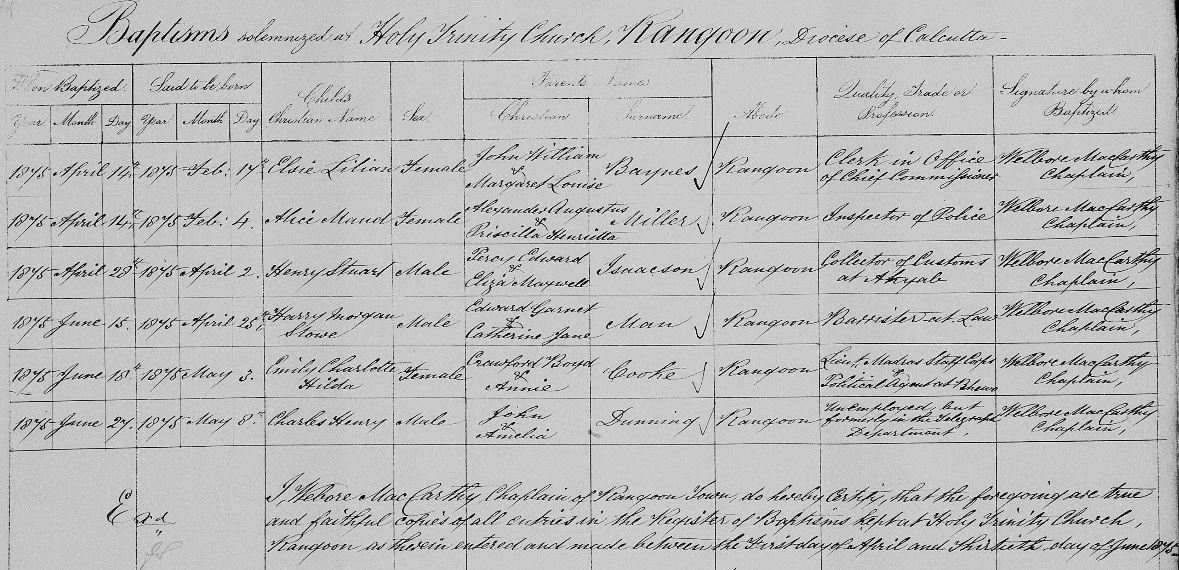 Baptisms solemnized at Holy Trinity Church, Rangoon, Diocese of Calcutta -
When Baptized. Said to be born Child's Christian Name Sex Parents Names Abode Quality, Trade or Profession. Signature by whom Baptized.
Year Month Day Year Month Day Christian Surname
1875 April 14th 1875 Feb: 17th Elsie Lilian Female John William & Margaret Louise Baynes Rangoon Clerk in Office of Chief Commissioner Welbore MacCarthy Chaplain,
1875 April 14th 1875 Feb: 4. Alice Maud Female Alexander Augustus & Priscilla Henrietta Miller Rangoon Inspector of Police Welbore MacCarthy Chaplain,
1875 April 28th 1875 April 2. Henry Stuart Male Percy Edward & Eliza Maxwell Isaacson Rangoon Collector of Customs at Akyab Welbore MacCarthy Chaplain,
1875 June 15. 1875 April 25th Harry Morgan Stowe Male Edward Garnet & Catherine Jane Man Rangoon Barrister-at Law Welbore MacCarthy Chaplain,
1875 June 18th 1875 May 3. Emily Charlotte Hilda Female Crawford Boyd & Annie Cooke Rangoon Lieut. Madras Staff Corps Political Agent at Bhamo Welbore MacCarthy Chaplain,
1875 June 27. 1875 May 8th Charles Henry Male John & Amelia Dunning Rangoon Unemployed, but formerly in the Telegraph Department. Welbore MacCarthy Chaplain,
I, Welbore MacCarthy Chaplain of Rangoon Town, do hereby Certify, that the foregoing are true
Exd and faithful copies of all entries in the Register of Baptisms kept at Holy Trinity Church,
Rangoon, as therein entered and made between the First day of April and Thirtieth day of June 1875